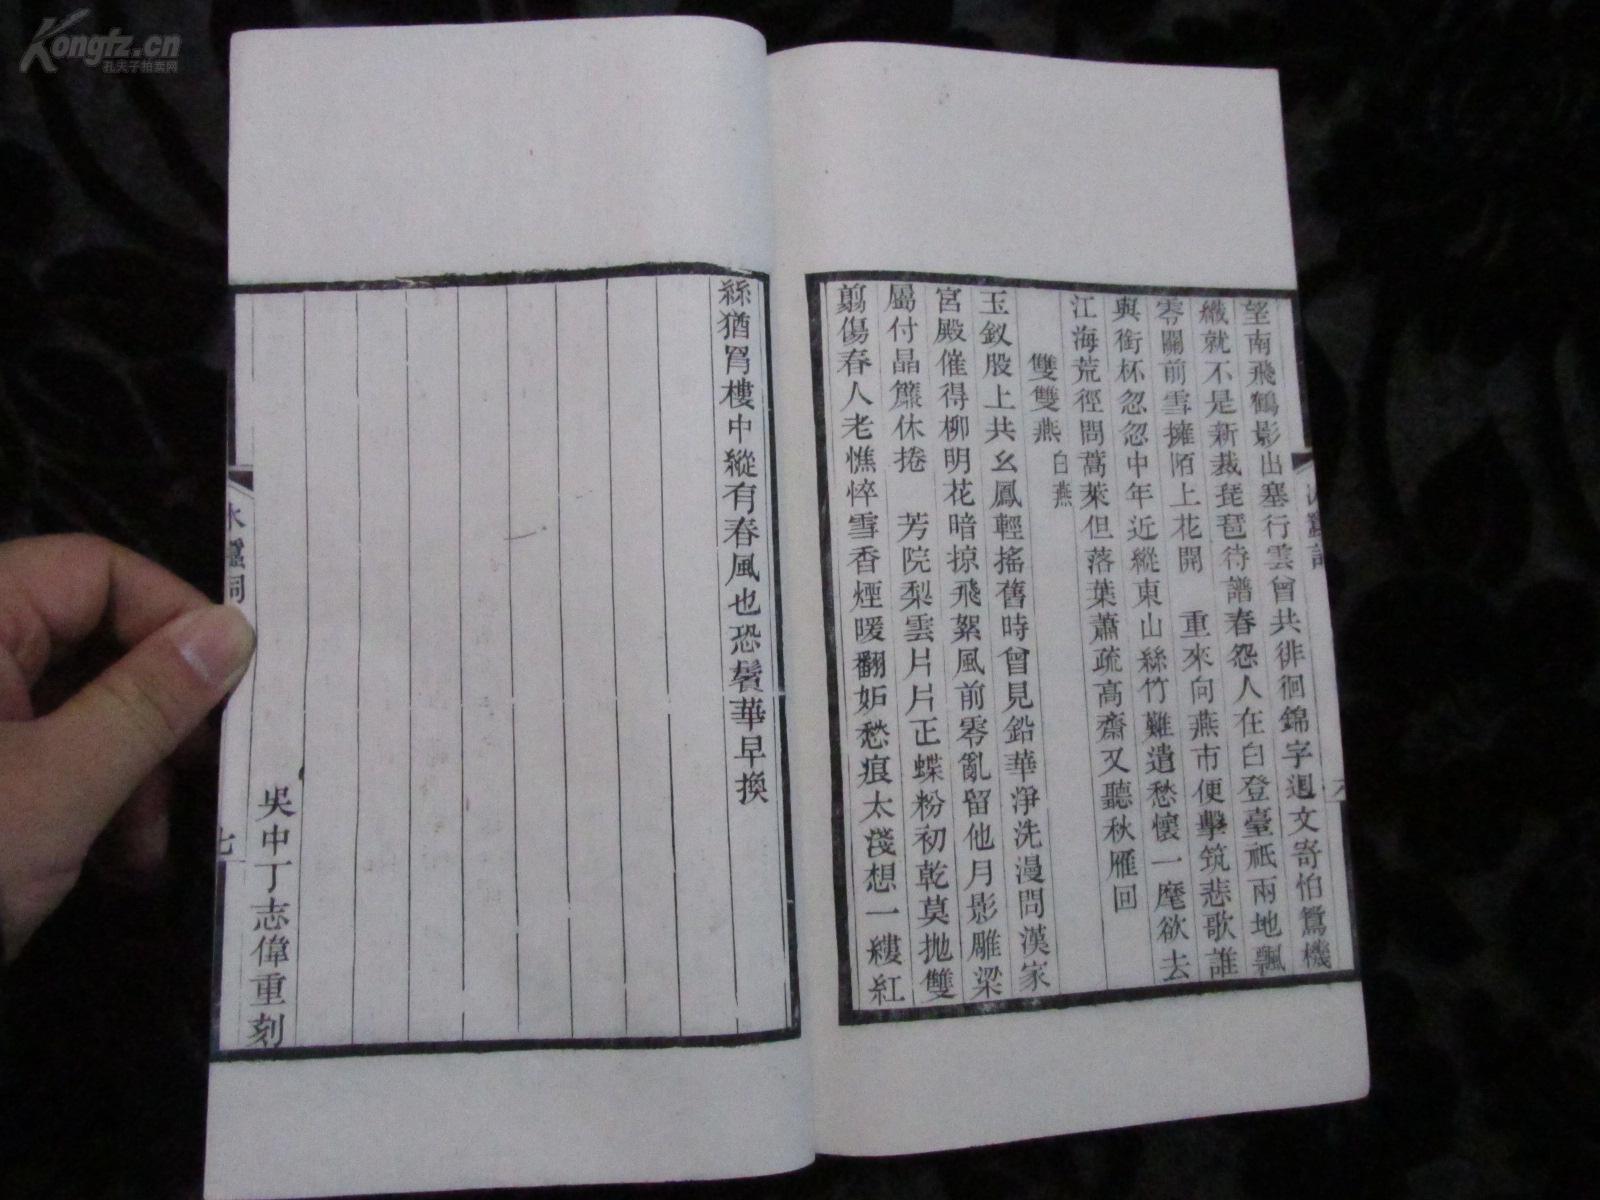 望南飛鶴影出塞行雲曾共徘徊錦字迴文寄怕鴛機
織就不是新裁琵琶待譜春怨人在白登臺祇兩地飄
零關前雪擁陌上花開　重來向燕市便擊筑悲歌誰
與銜杯忽忽中年近縱東山絲竹難遣愁懷一麾欲去
江海荒徑問蒿萊但落葉蕭疏高齋又聽秋雁回
雙雙燕 白燕
玉釵股上共幺鳳輕搖舊時曾見鉛華淨洗漫問漢家
宮殿催得柳明花暗掠飛絮風前零亂留他月影雕梁
屬付晶簾休捲　芳院梨雲片片正蝶粉初乾莫拋雙
翦傷春人老憔悴雪香煙暖翻妒愁痕太淺想一縷紅
六
絲猶罥樓中縱有春風也恐鬢華早換
吳中丁志偉重刻
冰蠶詞
七
Kongfz.cn
孔夫子拍卖网